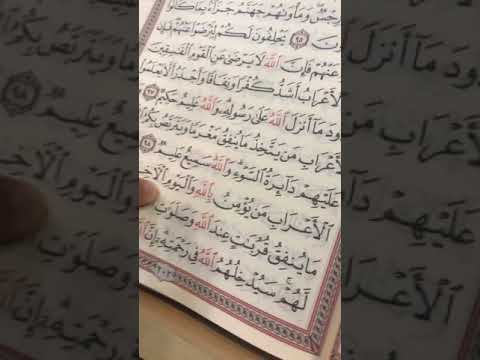 رِجْسٌ وَمَأْوَىٰهُمْ جَهَنَّمُ جَزَآءًۢ بِمَا
٩٥ يَحْلِفُونَ لَكُمْ لِتَرْضَوْا۟ عَنْهُمْ فَإِن
عَنْهُمْ فَإِنَّ ٱللَّهَ لَا يَرْضَىٰ عَنِ ٱلْقَوْمِ ٱلْفَٰسِقِينَ
ٱلْأَعْرَابُ أَشَدُّ كُفْرًا وَنِفَاقًا وَأَجْدَرُ أَلَّا
مَآ أَنزَلَ ٱللَّهُ عَلَىٰ رَسُولِهِۦ وَٱللَّهُ عَلِيمٌ حَكِيمٌ ٩٧
ٱلْأَعْرَابِ مَن يَتَّخِذُ مَا يُنفِقُ مَغْرَمًا وَيَتَرَبَّصُ
عَلَيْهِمْ دَآئِرَةُ ٱلسَّوْءِ وَٱللَّهُ سَمِيعٌ عَلِيمٌ ٩٨
ٱلْأَعْرَابِ مَن يُؤْمِنُ بِٱللَّهِ وَٱلْيَوْمِ
مَا يُنفِقُ قُرُبَٰتٍ عِندَ ٱللَّهِ وَصَلَوَٰتِ
لَّهُمْ سَيُدْخِلُهُمُ ٱللَّهُ فِى رَحْمَتِهِۦٓ إِنَّ